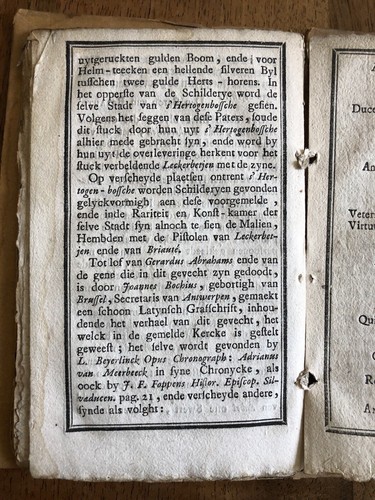 uytgeruckten gulden Boom, ende voor
Helm-teecken een hellende silveren Byl
tusschen twee gulde Herts-horens. In
het opperste van de Schilderye word de
selve Stadt van 's Hertogenbossche gesien.
Volgens het seggen van dese Paters, soude
dit stuck door hun uyt 's Hertogenbossche
alhier mede gebracht syn, ende word by
hun uyt de overleveringe herkent voor het
stuck verbeldende Leckerbetjen met de zyne.
Op verscheyde plaetsen ontrent 's Her-
togen-bossche worden Schilderyen gevonden
gelyckvormigh aen dese voorgemelde,
ende inde Rariteit en Konst-kamer der
selve Stadt syn alnoch te sien de Malien,
Hembden met de Pistolen van Leckerbet-
jen ende van Briauté.
Tot lof van Gerardus Abrahams ende van
de gene die in dit geveght zyn gedoodt,
is door Joannes Bochius, gebortigh van
Brussel, Secretaris van Antwerpen, gemaekt
een schoon Latynsch Grafschrift, inhou-
dende het verhael van dit gevecht, het
welck in de gemelde Kercke is gestelt
geweest; het selve wordt gevonden by
L. Beyerlinck Opus Chronograph: Adrianus
van Meerbeeck in syne Chronycke, als
oock by J. F. Foppens Histor. Episcop. Sil-
vaducen. pag. 21, ende verscheyde andere,
synde als volght:
A
Duce
An
Veter
Virtu
Qui
F
C
Re
An